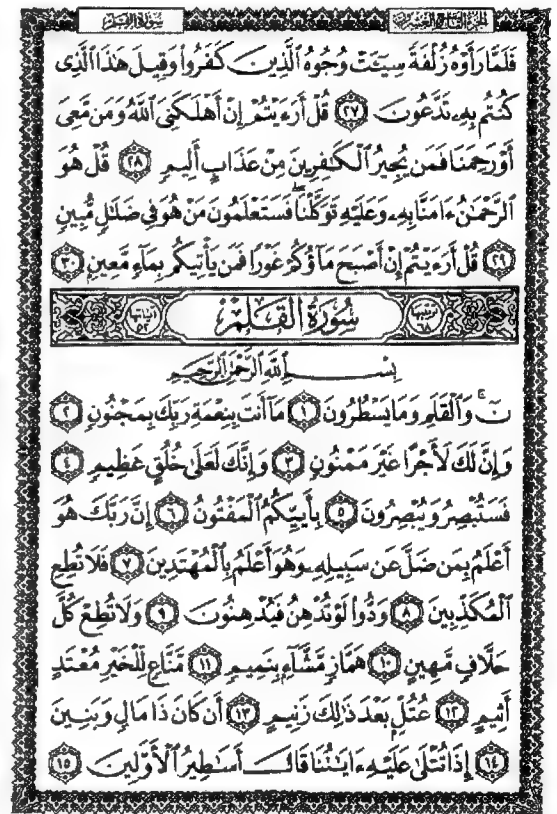 الجزء التاسع والعشرون سورة القلم
فَلَمَّا رَأَوْهُ زُلْفَةً سِيٓـَٔتْ وُجُوهُ ٱلَّذِينَ كَفَرُوا۟ وَقِيلَ هَـٰذَا ٱلَّذِى
كُنتُم بِهِۦ تَدَّعُونَ ٢٧ قُلْ أَرَءَيْتُمْ إِنْ أَهْلَكَنِىَ ٱللَّهُ وَمَن مَّعِىَ
أَوْ رَحِمَنَا فَمَن يُجِيرُ ٱلْكَـٰفِرِينَ مِنْ عَذَابٍ أَلِيمٍ ٢٨ قُلْ هُوَ
ٱلرَّحْمَـٰنُ ءَامَنَّا بِهِۦ وَعَلَيْهِ تَوَكَّلْنَا ۖ فَسَتَعْلَمُونَ مَنْ هُوَ فِى ضَلَـٰلٍ مُّبِينٍ
٢٩ قُلْ أَرَءَيْتُمْ إِنْ أَصْبَحَ مَآؤُكُمْ غَوْرًا فَمَن يَأْتِيكُم بِمَآءٍ مَّعِينٍۭ ٣٠
ترتيبها ٦٨ سُورَةُ الْقَلَمِ آياتها ٥٢
بِسْمِ ٱللَّهِ ٱلرَّحْمَـٰنِ ٱلرَّحِيمِ
نٓ ۚ وَٱلْقَلَمِ وَمَا يَسْطُرُونَ ١ مَآ أَنتَ بِنِعْمَةِ رَبِّكَ بِمَجْنُونٍ ٢
وَإِنَّ لَكَ لَأَجْرًا غَيْرَ مَمْنُونٍ ٣ وَإِنَّكَ لَعَلَىٰ خُلُقٍ عَظِيمٍ ٤
فَسَتُبْصِرُ وَيُبْصِرُونَ ٥ بِأَييِّكُمُ ٱلْمَفْتُونُ ٦ إِنَّ رَبَّكَ هُوَ
أَعْلَمُ بِمَن ضَلَّ عَن سَبِيلِهِۦ وَهُوَ أَعْلَمُ بِٱلْمُهْتَدِينَ ٧ فَلَا تُطِعِ
ٱلْمُكَذِّبِينَ ٨ وَدُّوا۟ لَوْ تُدْهِنُ فَيُدْهِنُونَ ٩ وَلَا تُطِعْ كُلَّ
حَلَّافٍ مَّهِينٍ ١٠ هَمَّازٍ مَّشَّآءٍۭ بِنَمِيمٍ ١١ مَّنَّاعٍ لِّلْخَيْرِ مُعْتَدٍ
أَثِيمٍ ١٢ عُتُلٍّۭ بَعْدَ ذَٰلِكَ زَنِيمٍ ١٣ أَن كَانَ ذَا مَالٍ وَبَنِينَ
١٤ إِذَا تُتْلَىٰ عَلَيْهِ ءَايَـٰتُنَا قَالَ أَسَـٰطِيرُ ٱلْأَوَّلِينَ ١٥